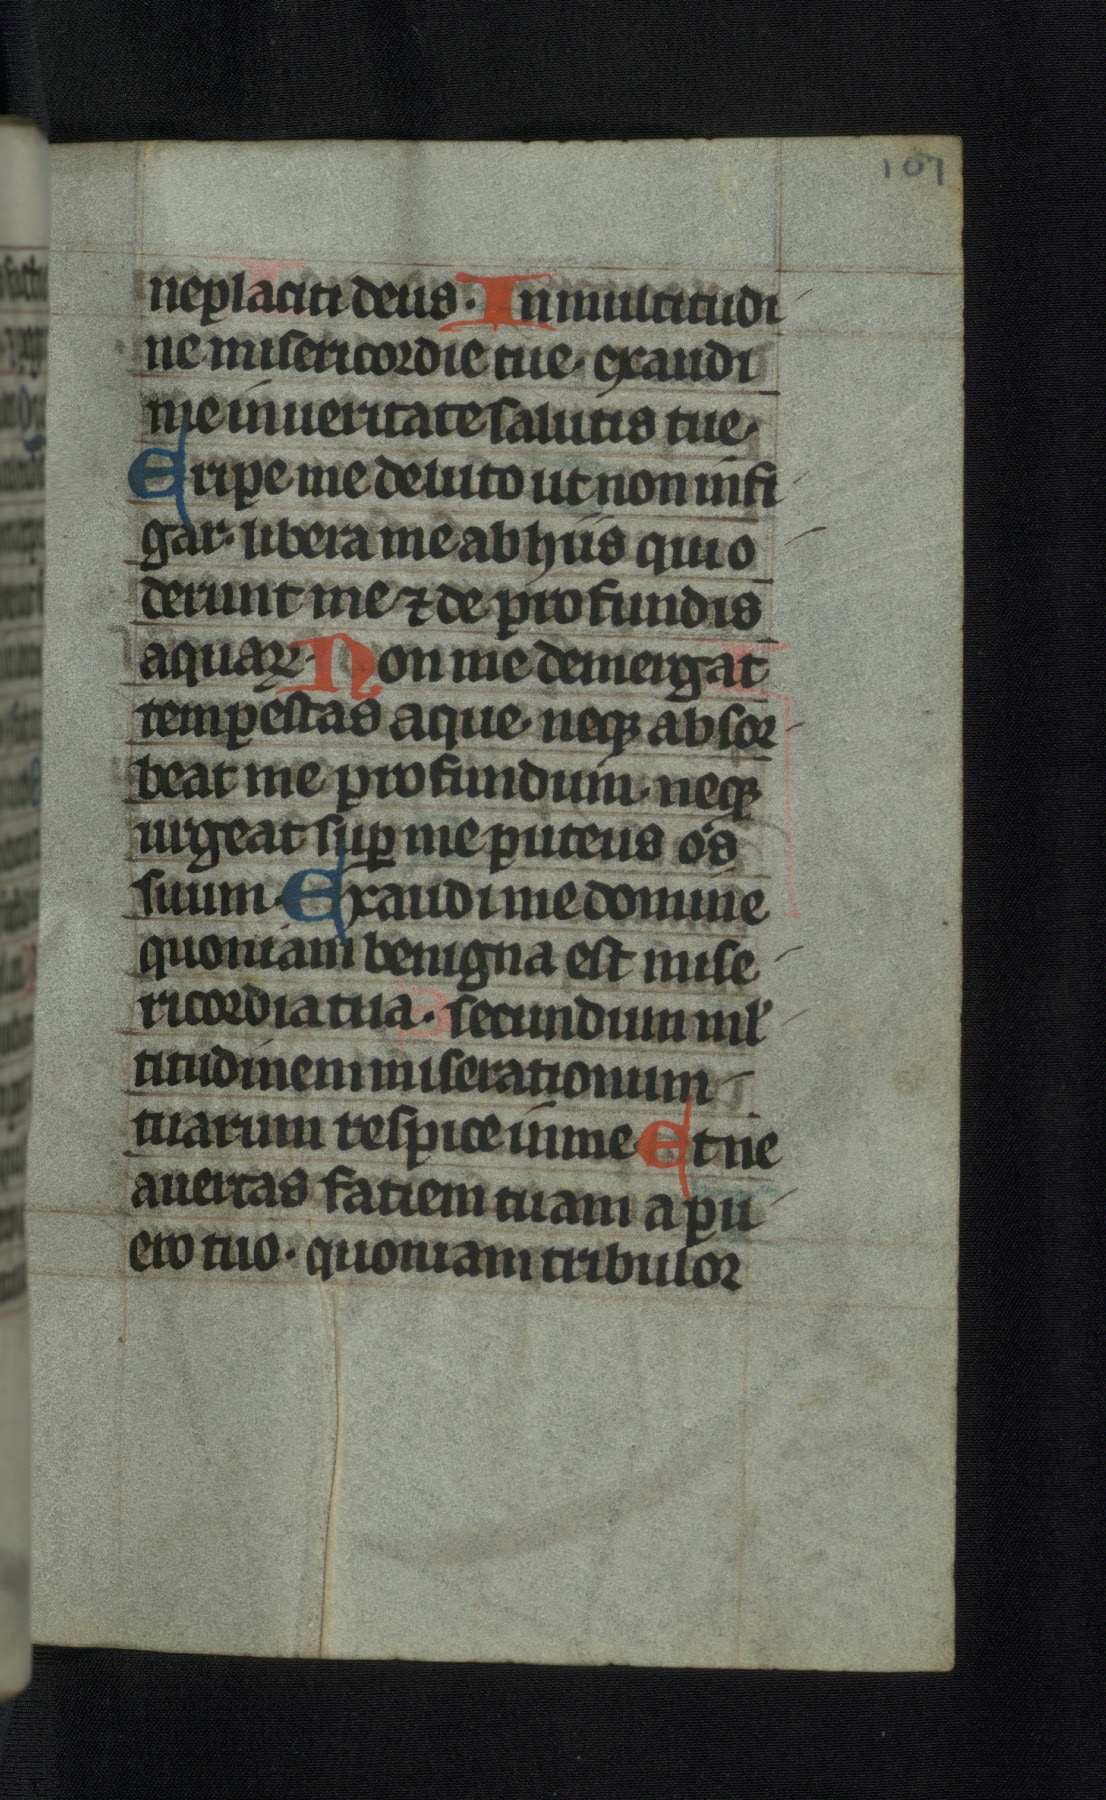 107
neplaciti deus. In multitudi
ne misericordie tue. exaudi
me in ueritate salutis tue.
Eripe me de luto ut non infi
gar. libera me ab hiis qui o
derunt me ⁊ de profundis
aquaꝝ. Non me demergat
tempestas aque. neqꝫ absor
beat me profundum. neqꝫ
urgeat suꝑ me puteus os
suum. Exaudi me domine
quoniam benigna est mise
ricordia tua. secundum ml'
titudinem miserationum
tuarum respice in me Et ne
auertas faciem tuam a pu
ero tuo. quoniam tribulor